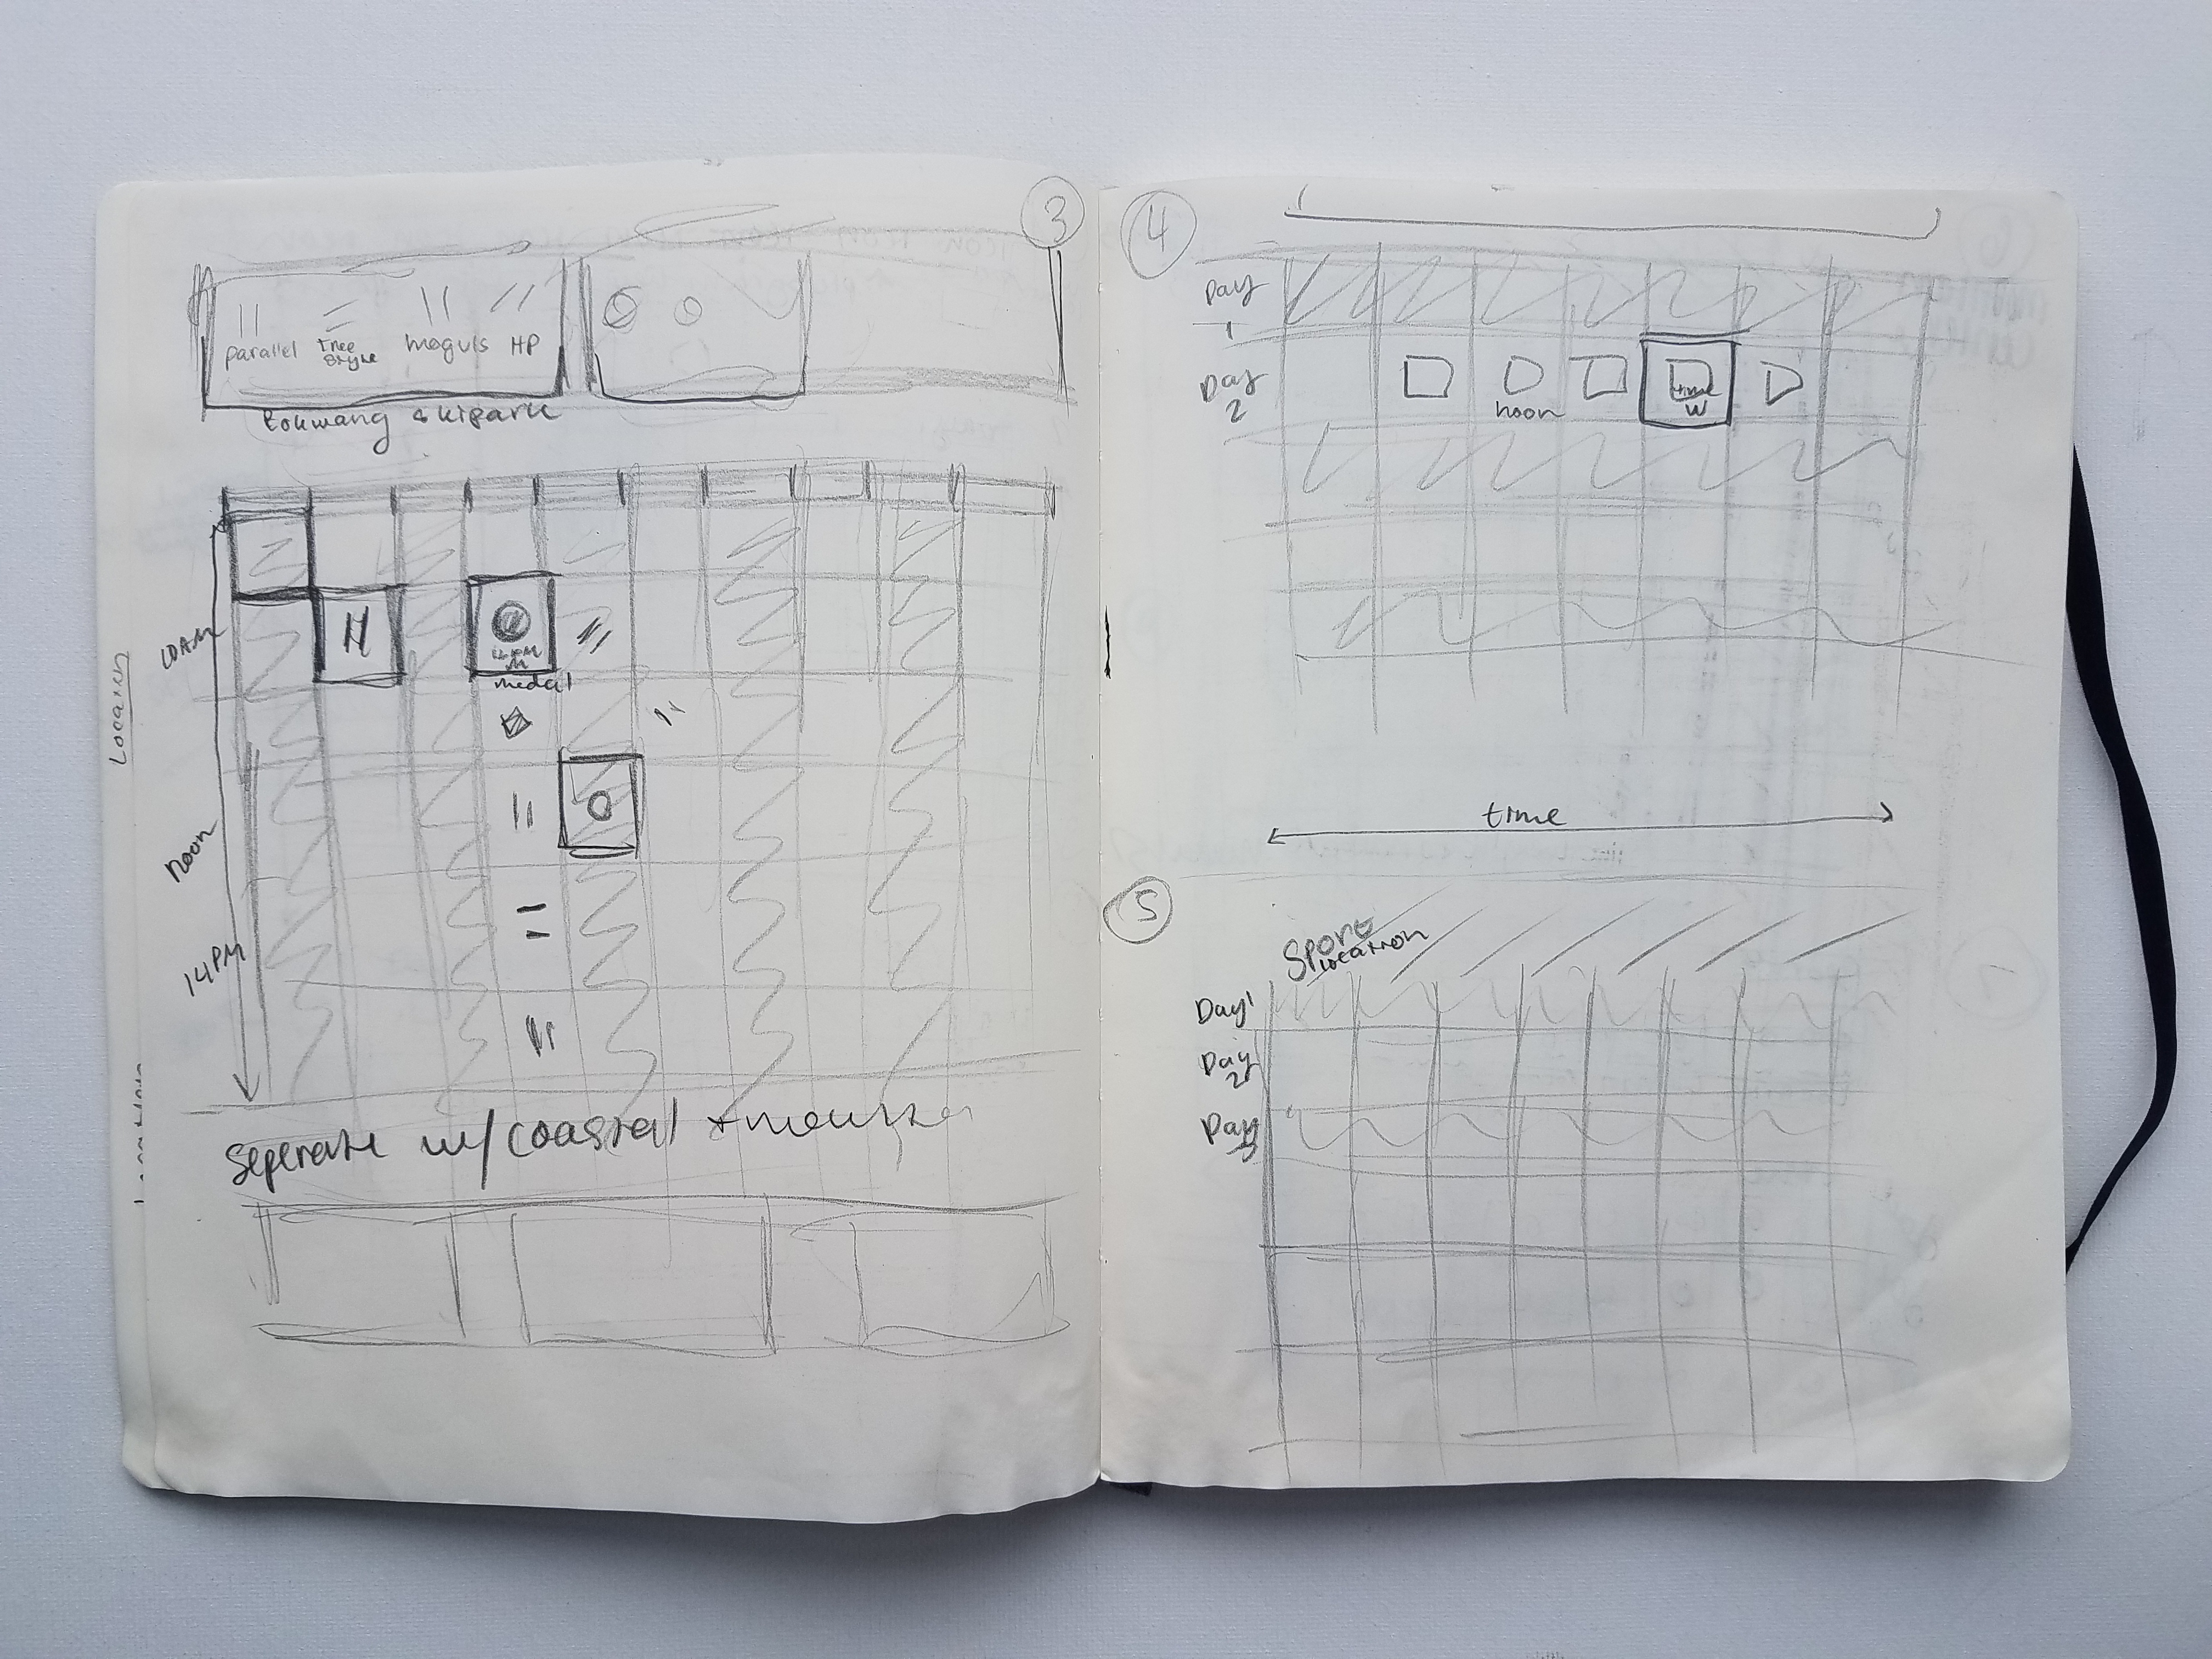 3
parallel
Free
Style
moguls
HP
Bokwang skipark
10AM
medal
Location
noon
14PM
Seperate w/ coastal +
4
Day
1
Day
2
noon
time
W
time
5
Sport
location
Day 1
Day
2
Day